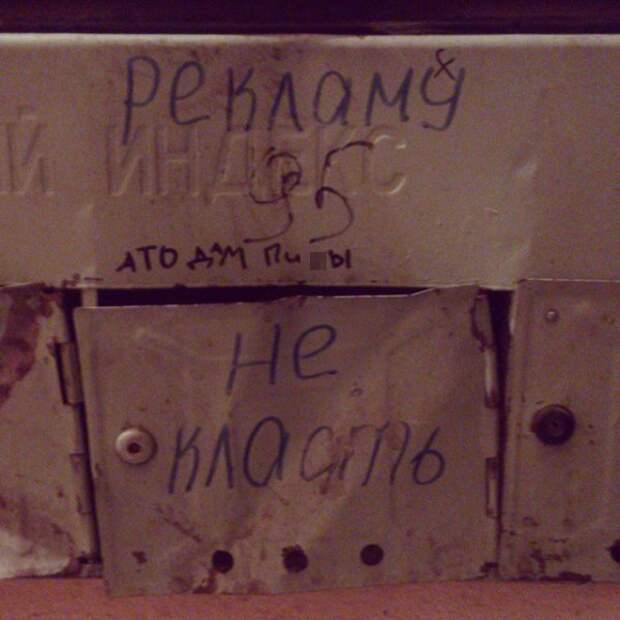 Рекламу
Й ИНДЕКС
95
АТО ДАМ Пи ы
Не
класть